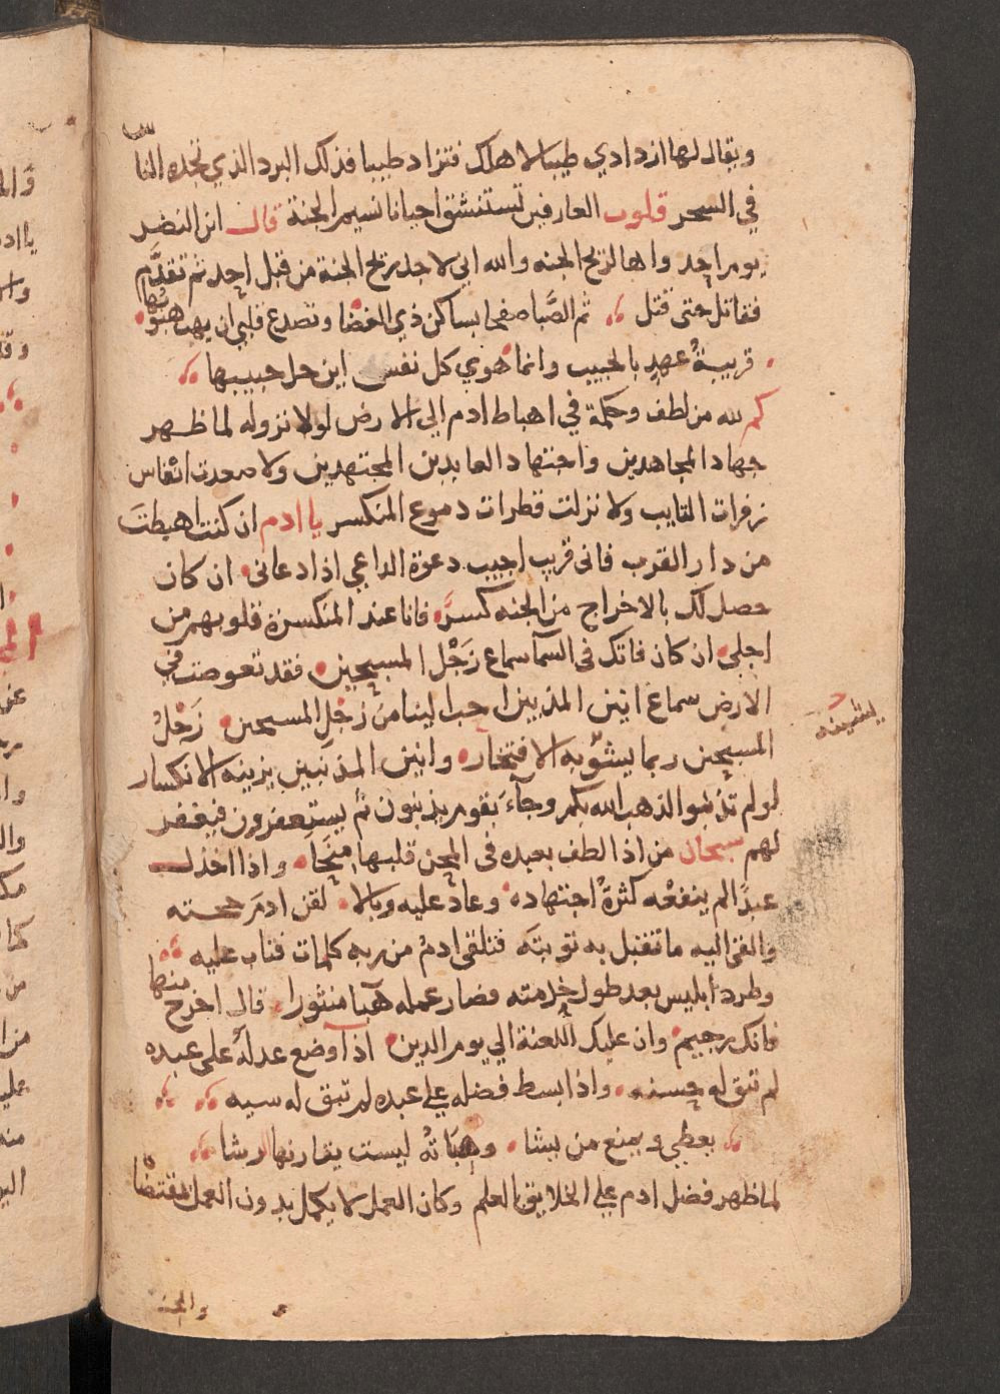 ويقال لها ازدادي طيبا لاهلك فتزاد طيبا فذلك البرد الذي تجده الناس
في السحر قلوب العارفين تستنشق احيانا نسيم الجنة قال انس ابن النضر
يوم احد واها لريح الجنه والله اني لاجد ريح الجنة من قبل احد ثم تقدَّم
فقاتل حتى قتل ؞ تمر الصَّبا صفحا بساكن ذي الغضا وتصدع قلبي ان يهب هبوبها
قريبةُ عهدٍ بالحبيب وانما هوي كل نفس اين حل حبيبها ؞
كم لله من لطف وحكمة في اهباط ادم الي الارض لولا نزوله لما ظهر
جهاد المجاهدين واجتهاد العابدين المجتهدين ولا صعدت انفاس
زفرات التايب ولا نزلت قطرات دموع المنكسر يا ادم ان كنت اهبطت
من دار القرب فاني قريب اجيب دعوة الداعي اذا دعاني ان كان
حصل لك بالاخراج من الجنه كسرٌ فانا عند المنكسرة قلوبهم من
اجلي ان كان فاتك في السما سماع زَجْل المسبحين فقد تعوضت في
الارض سماع انين المذنبين احب الينا من زجل المسبحين زَجْلُ
المسبحين ربما يشوبه الافتخار وانين المذنبين يزينه الانكسار
يشينه
لو لم تذنبوا لذهب الله بكم وجآءَ بقوم يذنبون ثم يستغفرون فيغفر
لهم سبحان من اذا لطف بعبده في المحن قلبها مِنَحا واذا اخذل
عبدًا لم ينفعْه كثرةُ اجتهاده وعاد عليه وبالا لقن ادمَ حجته
والقى اليه ما تتقبل به توبتَه فتلقى ادمُ من ربه كلمات فتاب عليه ؞
وطرد ابليس بعد طول خدمته فصار عمله هبآ منثورا قال اخرج منها
فانك رجيم وان عليك اللعنة الي يوم الدين اذا وضع عدلَه على عبده
لم تبق له حسنه واذا بسط فضله علي عبده لم تبق له سيه ؞ ؞
؞ يعطي ويمنع من يشا وهِبَاتُه ليست يقارنها رشا ؞
لما ظهر فضل ادم علي الخلايق بالعلم وكان العلم لا يكمل بدون العمل بمقتضاه
والجنه